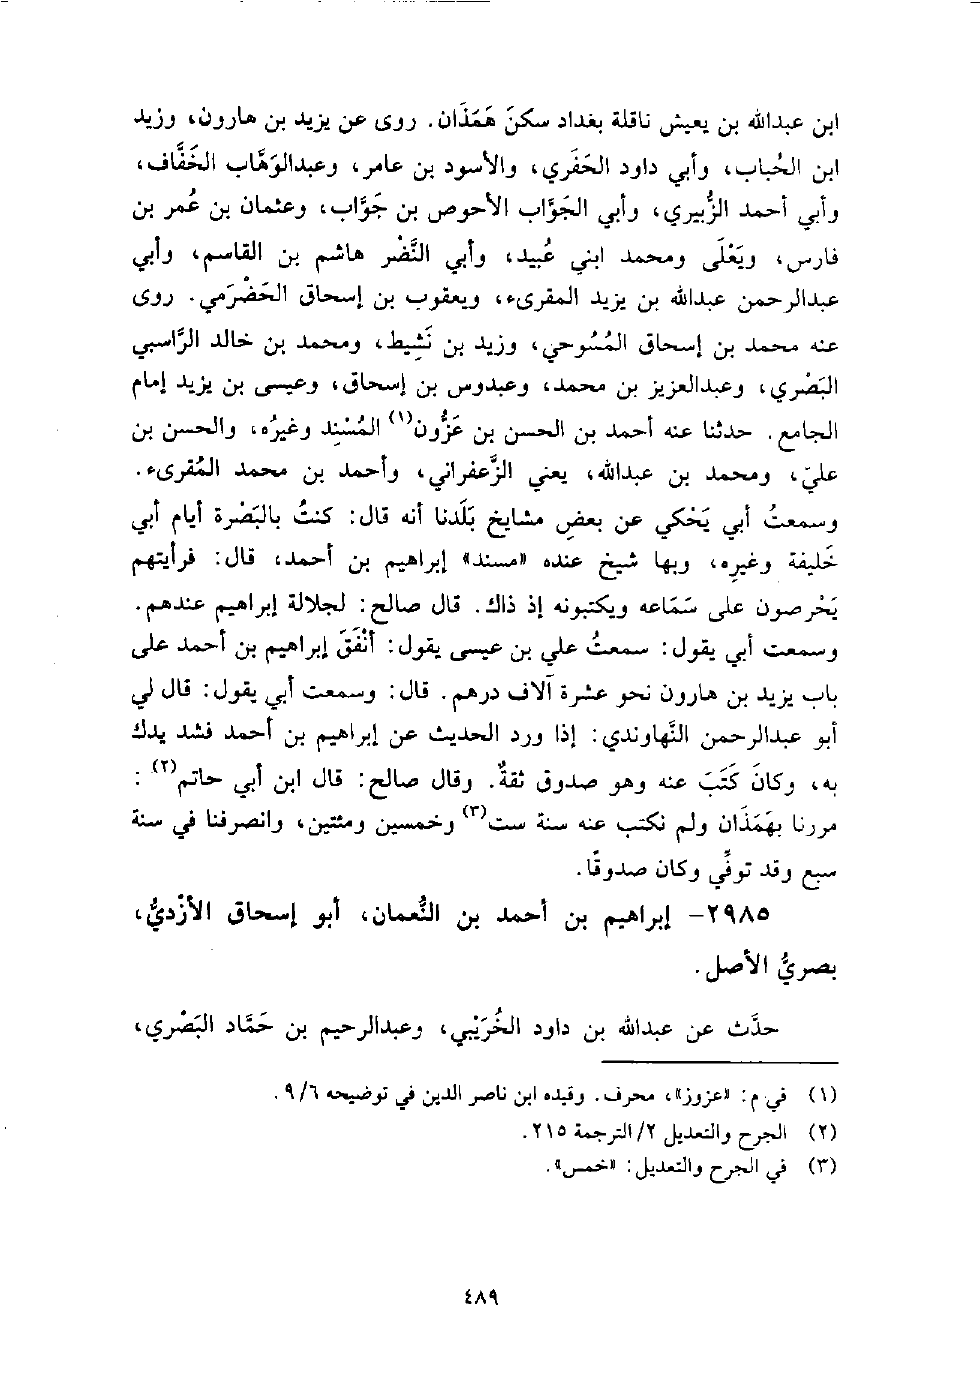 ابن عبدالله بن يعيش ناقلة بغداد سكنَ هَمَذَان. روى عن يزيد بن هارون، وزيد
ابن الحُباب، وأبي داود الحَفَري، والأسود بن عامر، وعبدالوَهَّاب الخَفَّاف،
وأبي أحمد الزُّبيري، وأبي الجَوَّاب الأحوص بن جَوَّاب، وعثمان بن عُمر بن
فارس، ويَعْلَى ومحمد ابني عُبيد، وأبي النَّضْر هاشم بن القاسم، وأبي
عبدالرحمن عبدالله بن يزيد المقرىء، ويعقوب بن إسحاق الحَضْرَمي. روى
عنه محمد بن إسحاق المُسُوحي، وزيد بن نَشِيط، ومحمد بن خالد الرَّاسبي
البَصْري، وعبدالعزيز بن محمد، وعبدوس بن إسحاق، وعيسى بن يزيد إمام
الجامع. حدثنا عنه أحمد بن الحسن بن عَزُّون(١) المُسْنِد وغيرُه، والحسن بن
علي، ومحمد بن عبدالله، يعني الزَّعفراني، وأحمد بن محمد المُقرىء.
وسمعتُ أبي يَحْكي عن بعضِ مشايخ بَلَدنا أنه قال: كنتُ بالبَصْرة أيام أبي
خَليفة وغيرِه، وبها شيخ عنده «مسند» إبراهيم بن أحمد، قال: فرأيتهم
يَحْرصون على سَمَاعه ويكتبونه إذ ذاك. قال صالح: لجلالة إبراهيم عندهم.
وسمعت أبي يقول: سمعتُ علي بن عيسى يقول: أنْفَقَ إبراهيم بن أحمد على
باب يزيد بن هارون نحو عشرة آلاف درهم. قال: وسمعت أبي يقول: قال لي
أبو عبدالرحمن النَّهاوندي: إذا ورد الحديث عن إبراهيم بن أحمد فشد يدك
به، وكانَ كَتَبَ عنه وهو صدوق ثقةٌ. وقال صالح: قال ابن أبي حاتم(٢):
مررنا بهَمَذَان ولم نكتب عنه سنة ست(٣) وخمسين ومئتين، وانصرفنا في سنة
سبع وقد توفِّي وكان صدوقًا.
٢٩٨٥- إبراهيم بن أحمد بن النُّعمان، أبو إسحاق الأزْديُّ،
بصريُّ الأصل.
حدَّث عن عبدالله بن داود الخُرَيْبي، وعبدالرحيم بن حَمَّاد البَصْري،
(١) في م: «عزوز»، محرف. وقيده ابن ناصر الدين في توضيحه ٦/ ٩.
(٢) الجرح والتعديل ٢/ الترجمة ٢١٥.
(٣) في الجرح والتعديل: «خمس».
٤٨٩